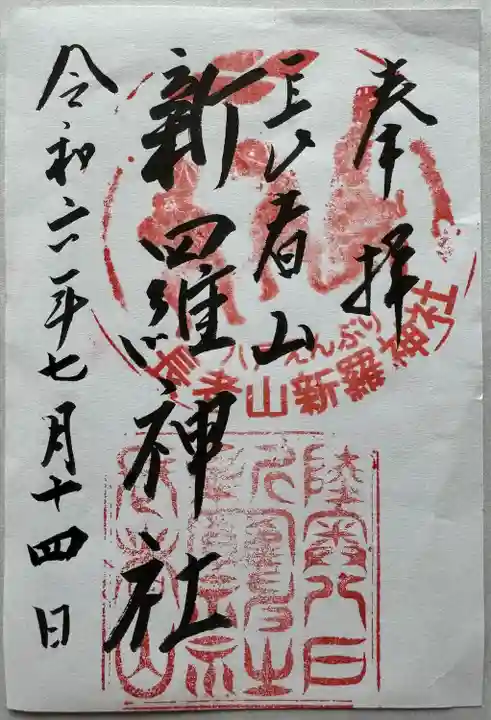 奉拝
長者山
新羅神社
令和六年七月十四日
八戸えんぶり
長者山新羅神社